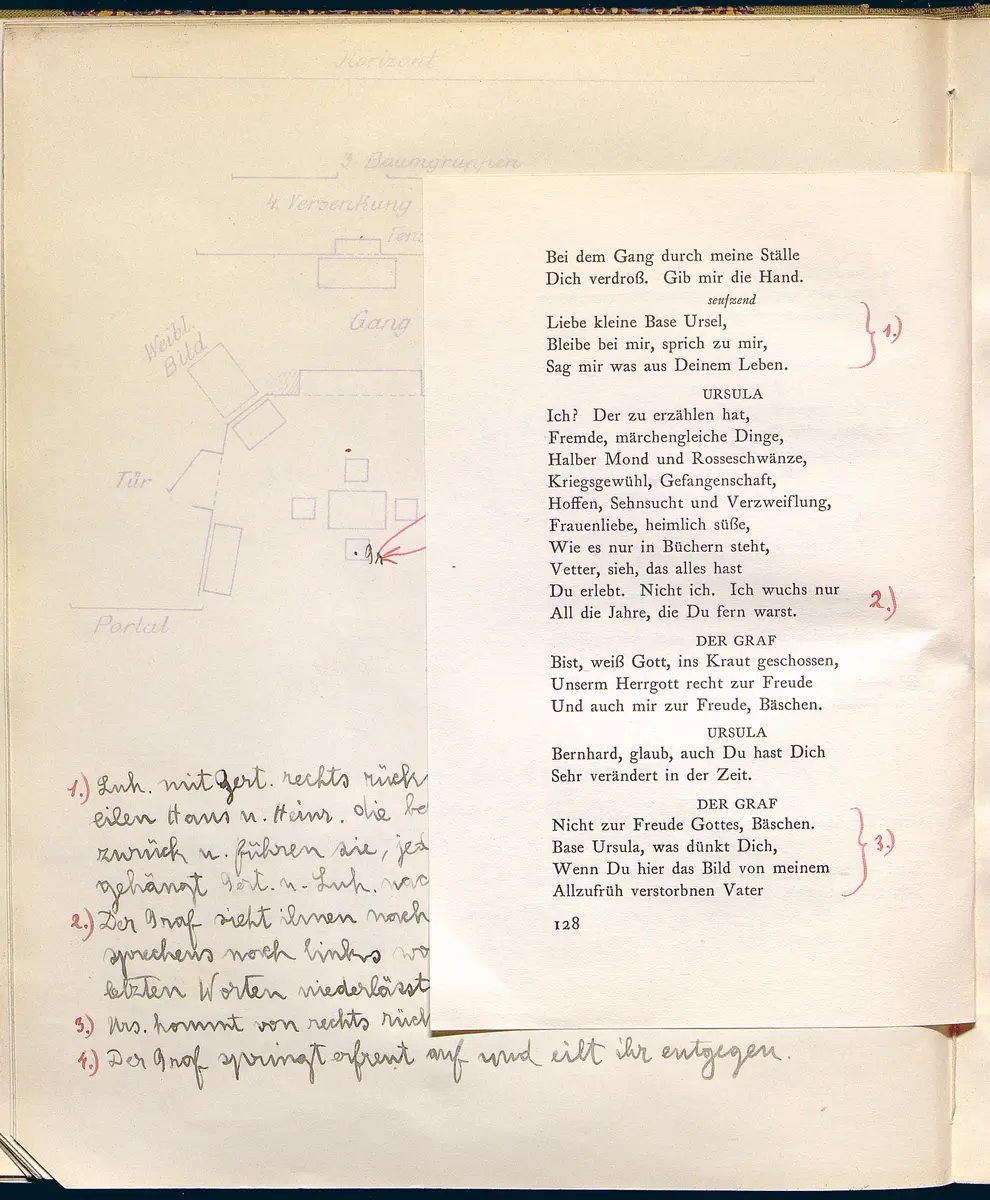 Horizont
3. Baumgruppen
4. Versenkung
Gang
Weibl.
Bild
Tür
Gr
Portal
Bei dem Gang durch meine Ställe
Dich verdroß. Gib mir die Hand.
seufzend
Liebe kleine Base Ursel,
1.)
Bleibe bei mir, sprich zu mir,
Sag mir was aus Deinem Leben.
URSULA
Ich? Der zu erzählen hat,
Fremde, märchengleiche Dinge,
Halber Mond und Rosseschwänze,
Kriegsgewühl, Gefangenschaft,
Hoffen, Sehnsucht und Verzweiflung,
Frauenliebe, heimlich süße,
Wie es nur in Büchern steht,
Vetter, sieh, das alles hast
Du erlebt. Nicht ich. Ich wuchs nur
2.)
All die Jahre, die Du fern warst.
DER GRAF
Bist, weiß Gott, ins Kraut geschossen,
Unserm Herrgott recht zur Freude
Und auch mir zur Freude, Bäschen.
URSULA
Bernhard, glaub, auch Du hast Dich
Sehr verändert in der Zeit.
DER GRAF
Nicht zur Freude Gottes, Bäschen.
Base Ursula, was dünkt Dich,
3.)
Wenn Du hier das Bild von meinem
Allzufrüh verstorbnen Vater
128
1.) Luk. mit Gert. rechts rück
eilen Hans u. Heinr. die be
zurück u. führen sie, jed
gehängt Gert. u. Luk. nac
2.) Der Graf sieht ihnen noch
sprechens noch links wo
letzten Worten niederlässt
3.) Urs. kommt von rechts rück
4.) Der Graf springt erfreut auf und eilt ihr entgegen.